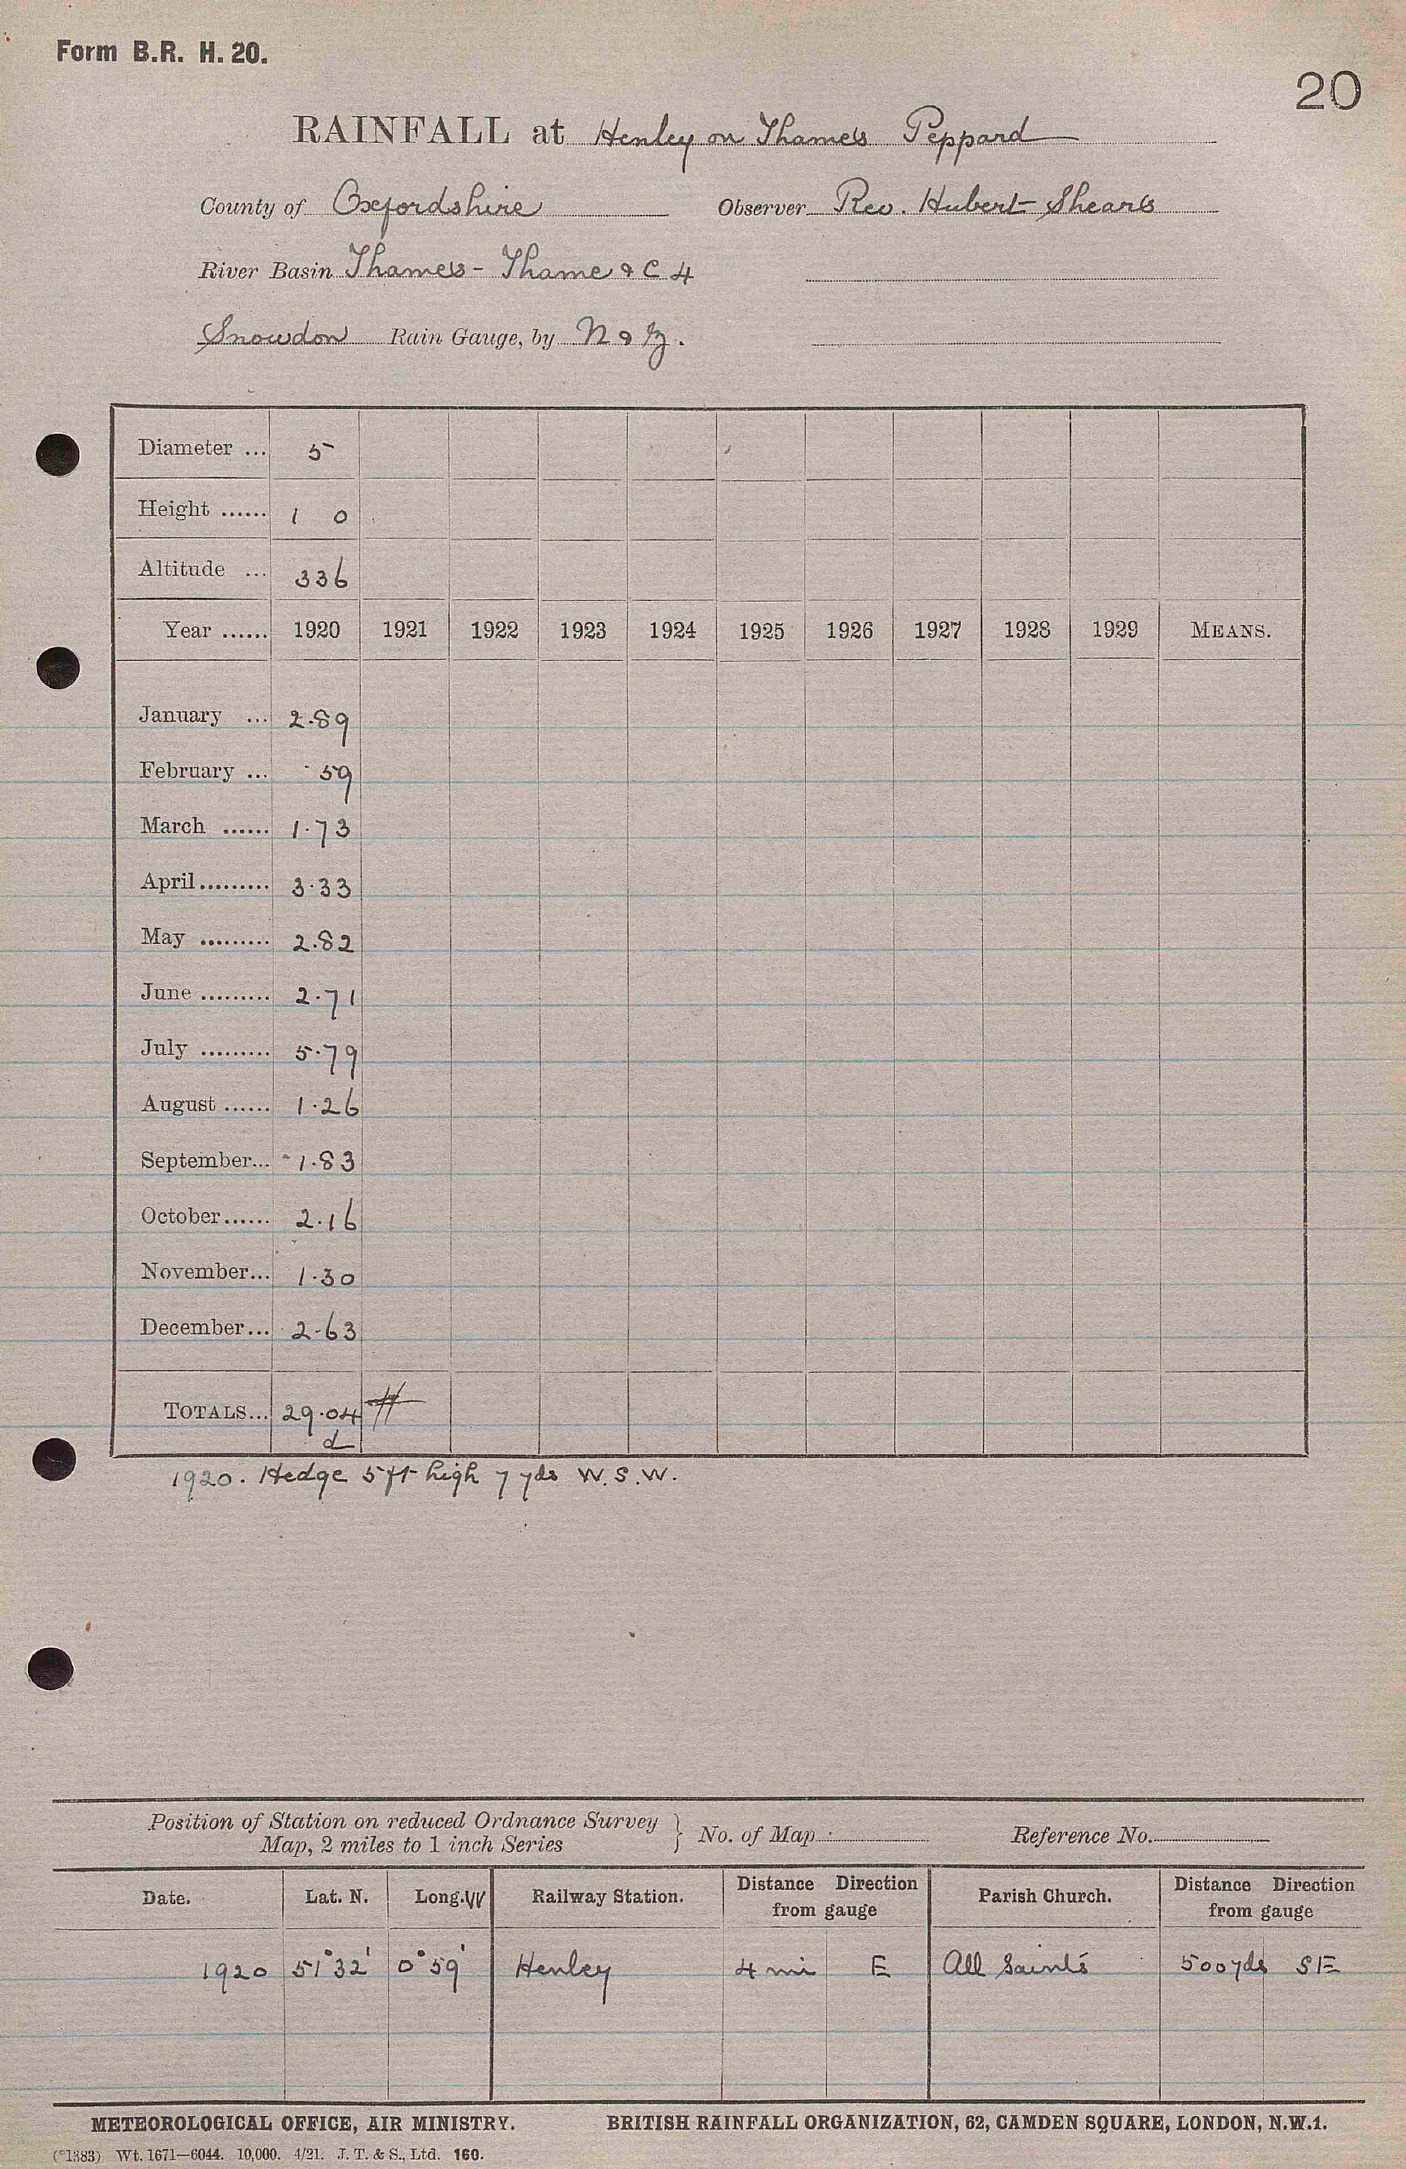 Form B.R. H. 20.
20
RAINFALL at Henley on Thames Peppard
County of Oxfordshire Observer Rev. Hubert Shears
River Basin Thames - Thame & C 4
Snowdon Rain Gauge, by N & Z.
Diameter ... 5
Height ...... 1 0
Altitude ... 336
Year ...... 1920 1921 1922 1923 1924 1925 1926 1927 1928 1929 MEANS.
January ... 2.89
February ... .59
March ...... 1.73
April......... 3.33
May ......... 2.82
June ......... 2.71
July ......... 5.79
August ...... 1.26
September... 1.83
October...... 2.16
November... 1.30
December... 2.63
TOTALS... 29.04
d
1920. Hedge 5 ft high 7 yds W.S.W.
Position of Station on reduced Ordnance Survey
Map, 2 miles to 1 inch Series } No. of Map Reference No.
Date. Lat. N. Long. W Railway Station. Distance Direction from gauge Parish Church. Distance Direction from gauge
1920 51°32' 0°59' Henley 4 mi E All Saints 500 yds SE
METEOROLOGICAL OFFICE, AIR MINISTRY. BRITISH RAINFALL ORGANIZATION, 62, CAMDEN SQUARE, LONDON, N.W.1.
(*1383) Wt. 1671—6044. 10,000. 4/21. J. T. & S., Ltd. 160.